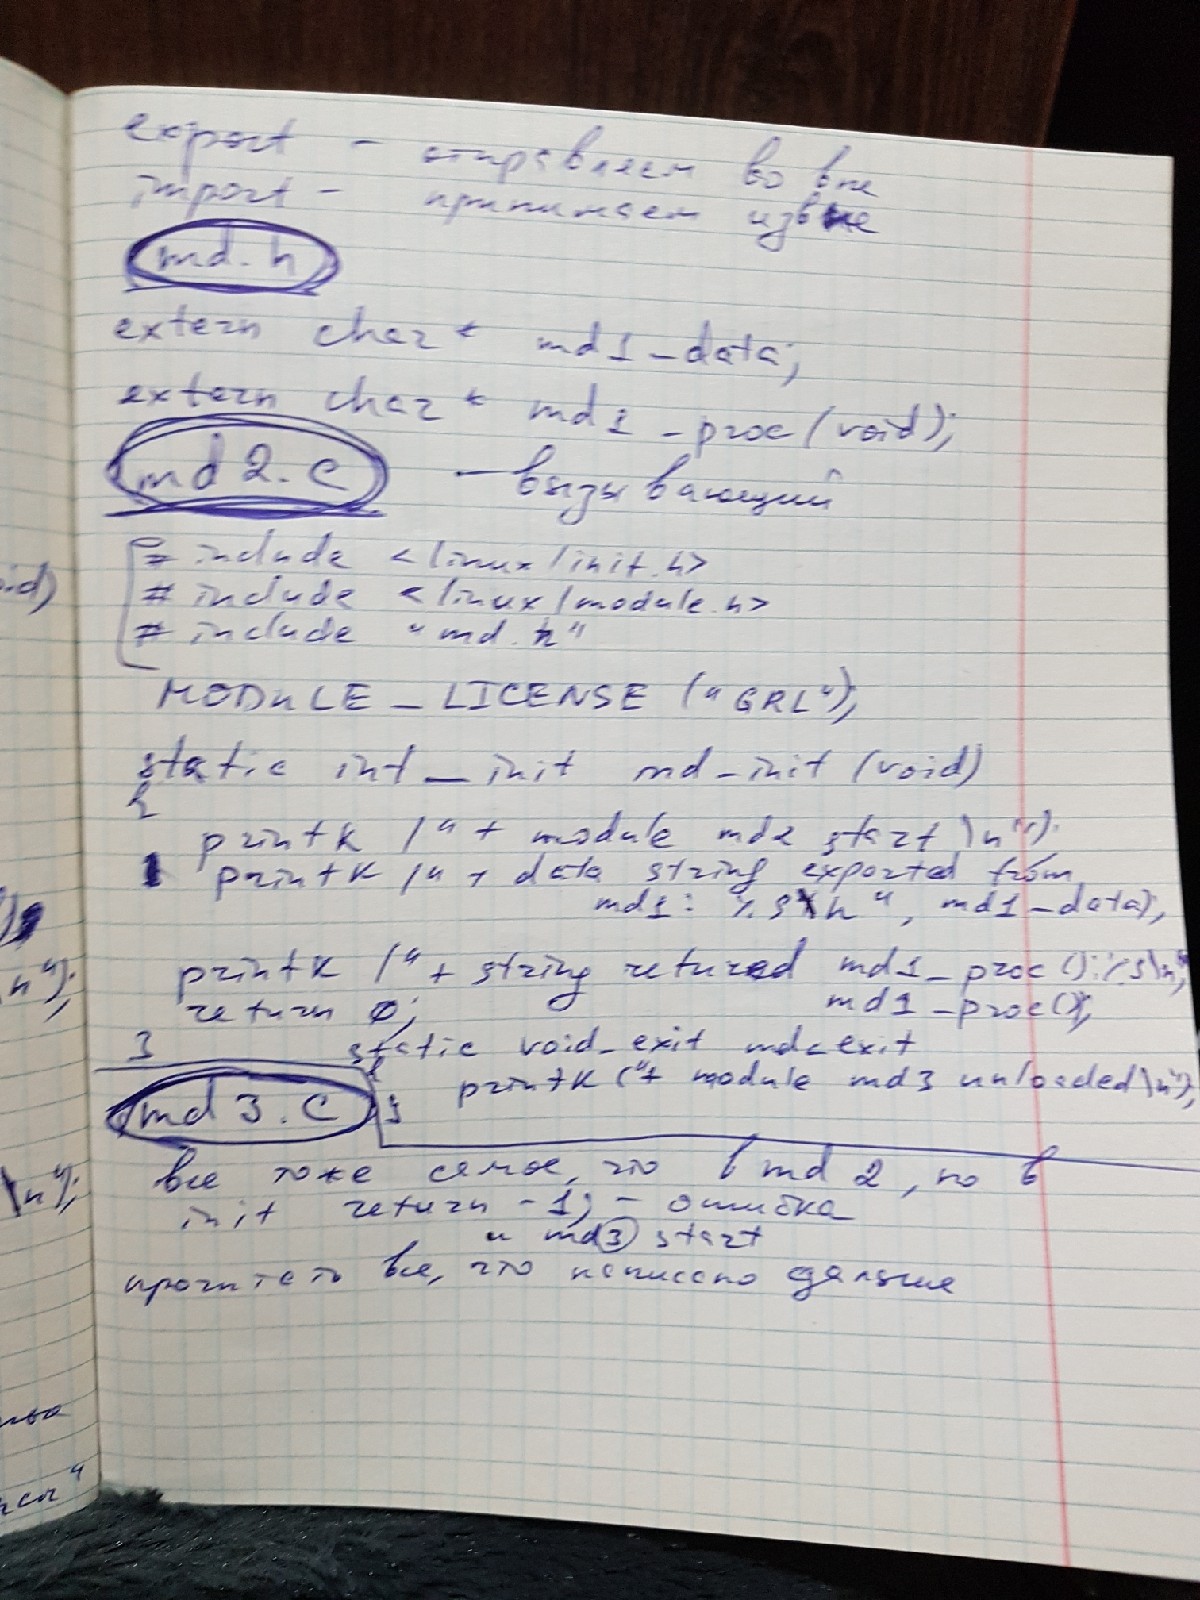 export - отправляем во вне
import - принимаем извне
md.h
extern char * md1_data;
extern char * md1_proc(void);
md2.c - вызывающий
# include <linux/init.h>
# include <linux/module.h>
# include "md.h"
MODULE_LICENSE ("GRL");
static int _init md_init (void)
{
printk ("+ module md2 start \n");
printk ("+ data string exported from
md1: %s\n", md1_data);
printk ("+ string returned md1_proc():%s\n",
return 0; md1_proc());
} static void_exit md_exit
{ printk ("+ module md3 unloaded\n");
md3.c }
все тоже самое, что в md2, но в
init return -1; - ошибка
и md3 start
прочитать все, что написано дальше
oid)
\n");
\n");